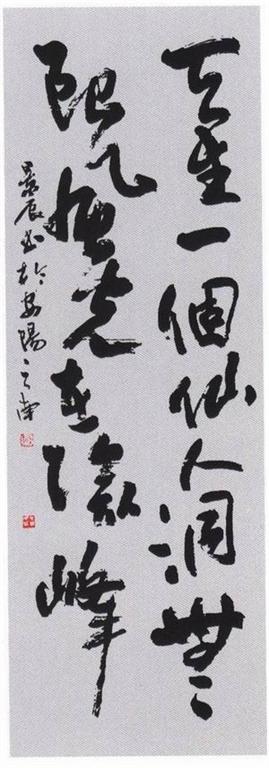 天生一個仙人洞無
限風光在險峰
辰书於安陽之南